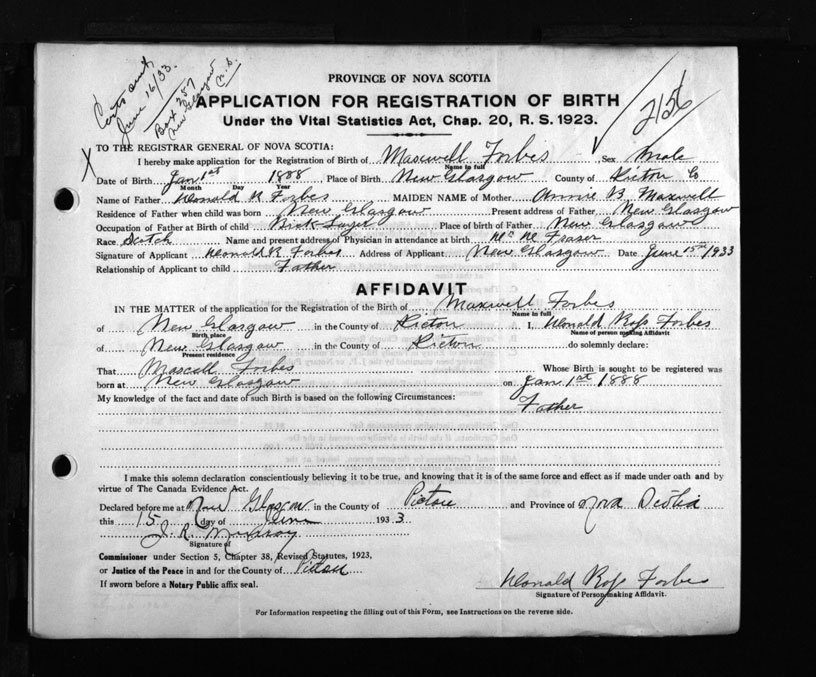 Cert. sent
June 16/33.
Box 257
New Glasgow
N.S.
2156
PROVINCE OF NOVA SCOTIA
APPLICATION FOR REGISTRATION OF BIRTH
Under the Vital Statistics Act, Chap. 20, R. S. 1923.
X
TO THE REGISTRAR GENERAL OF NOVA SCOTIA:
I hereby make application for the Registration of Birth of Maxwell Forbes Sex Male
Name in full
Date of Birth Jan 1st 1888 Place of Birth New Glasgow County of Pictou Co
Month Day Year
Name of Father Donald R Forbes MAIDEN NAME of Mother Annie B. Maxwell
Residence of Father when child was born New Glasgow Present address of Father New Glasgow
Occupation of Father at Birth of child Brick Place of birth of Father New Glasgow
Race Scotch Name and present address of Physician in attendance at birth Fraser
Signature of Applicant Donald R Forbes Address of Applicant New Glasgow Date June 15th 1933
Relationship of Applicant to child Father
AFFIDAVIT
IN THE MATTER of the application for the Registration of the Birth of Maxwell Forbes
Name in full
of New Glasgow in the County of Pictou I, Donald Ross Forbes
Birth place Name of person making Affidavit
of New Glasgow in the County of Pictou do solemnly declare:
Present residence
That Forbes Whose Birth is sought to be registered was
born at New Glasgow on Jan 1st 1888
My knowledge of the fact and date of such Birth is based on the following Circumstances: Father
I make this solemn declaration conscientiously believing it to be true, and knowing that it is of the same force and effect as if made under oath and by
virtue of The Canada Evidence Act.
Declared before me at New Glasgow in the County of Pictou and Province of Nova Scotia
this 15 day of June 1933
J. R. Murray
Signature of
Commissioner under Section 5, Chapter 38, Revised Statutes, 1923,
or Justice of the Peace in and for the County of Pictou
If sworn before a Notary Public affix seal.
Donald Ross Forbes
Signature of Person making Affidavit.
For Information respecting the filling out of this Form, see Instructions on the reverse side.